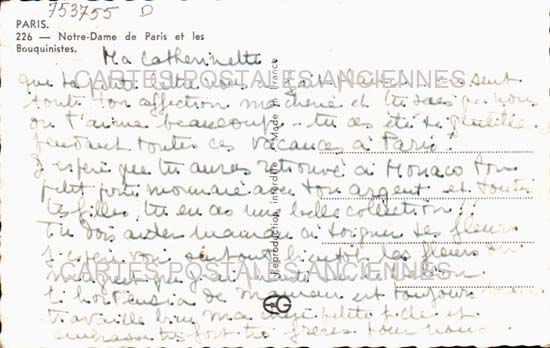 753755 D
PARIS.
226 — Notre-Dame de Paris et les
Bouquinistes.
Ma Catherinette
que ta petite lettre nous a fait plaisir on sent
toute ton affection ma chérie et tu sais que nous
on t'aime beaucoup - tu as été si gentille
pendant toutes ces vacances à Paris.
J'espère que tu auras retrouvé à Monaco ton
petit porte monnaie avec ton argent et toutes
tes filles, tu en as une belle collection !!
Tu dois aider maman à soigner ses fleurs
J'espère voir bientôt les fleurs
hortensia de maman est toujours
travaille bien ma chère petite fille et
embrasse très fort tes frères pour nous
CARTES POSTALES ANCIENNES
CARTES POSTALES ANCIENNES
Reproduction interdite - Made in France
EG